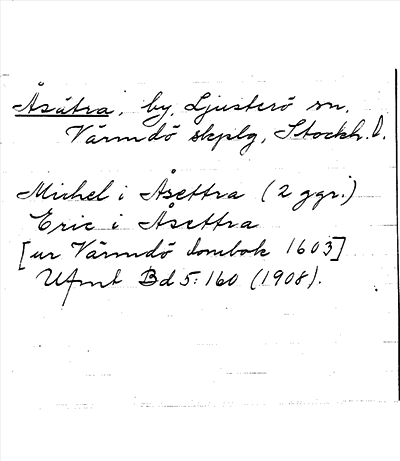 Åsätra, by, Ljusterö sn,
Värmdö skplg, Stockh. l.
Michel i Åsettra (2 ggr.)
Eric i Åsettra
[ur Värmdö dombok 1603]
UFmt Bd 5: 160 (1908).